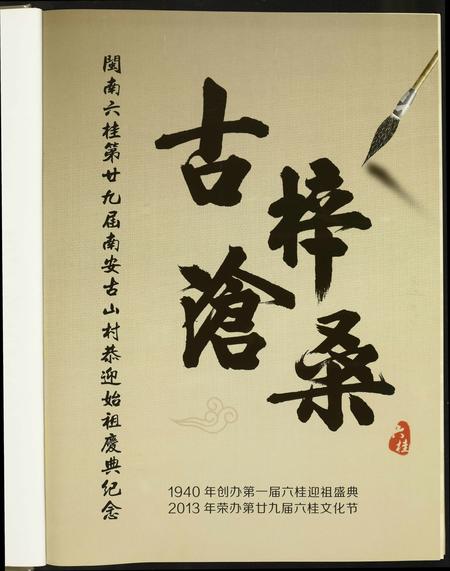 閩南六桂第廿九届南安古山村恭迎始祖慶典纪念
古滄
梓桑
六桂
1940 年创办第一届六桂迎祖盛典
2013 年荣办第廿九届六桂文化节